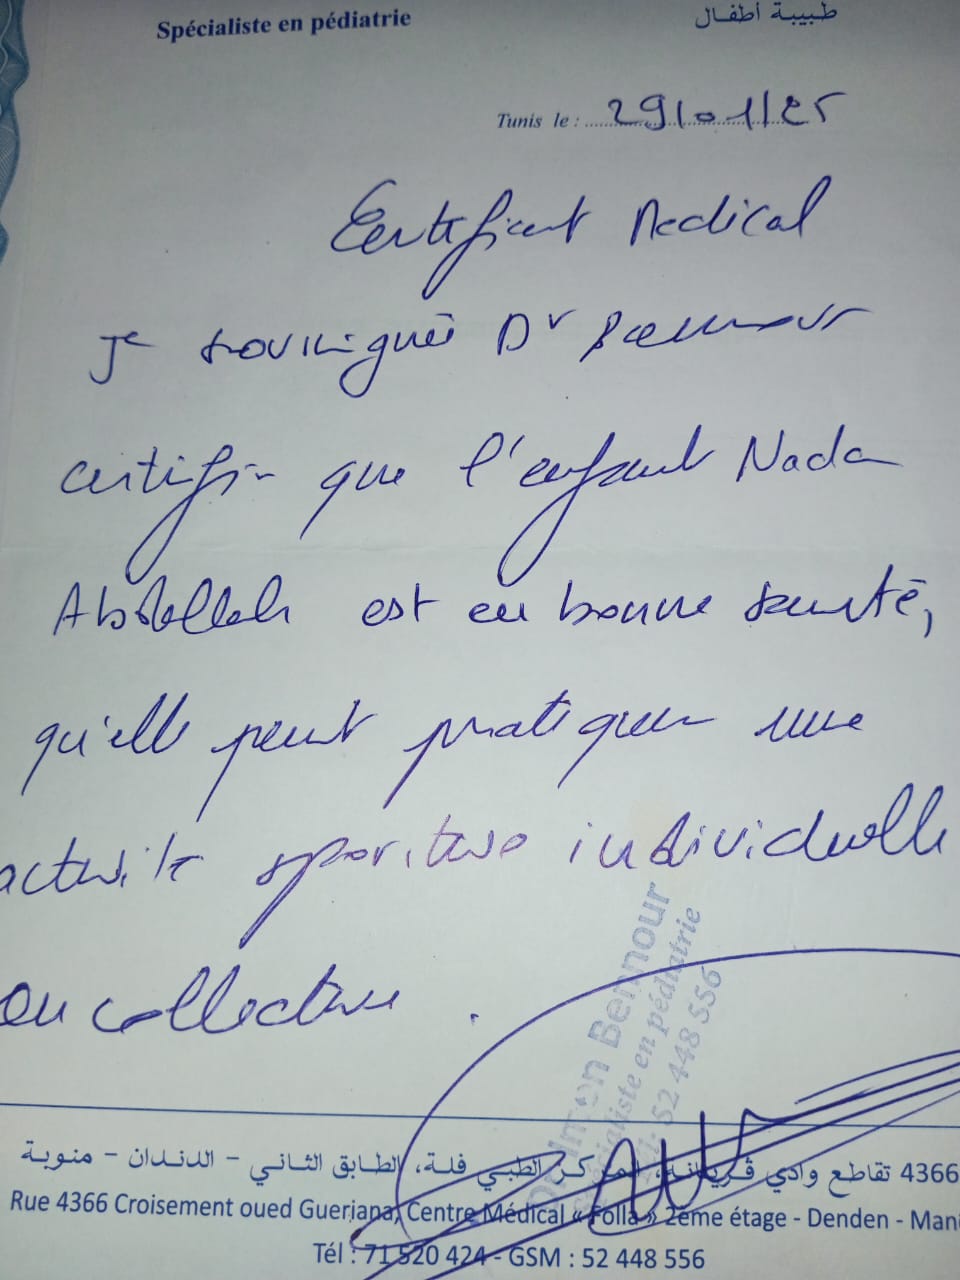 Spécialiste en pédiatrie
طبيبة أطفال
Tunis le : 29/01/25
Certificat Medical
Je soussignée Dr Bennour
certifie que l'enfant Nada
Abdellah est en bonne santé,
qu'elle peut pratiquer une
activité sportive individuelle
ou collective .
Bennour
Spécialiste en pédiatrie
52 448 556
4366 تقاطع وادي ڤريانة، المركز الطبي فلة، الطابق الثاني – الدندان – منوبة
Rue 4366 Croisement oued Guerjana, Centre Médical « Folla » 2ème étage - Denden - Man
Tél : 71 520 424 - GSM : 52 448 556